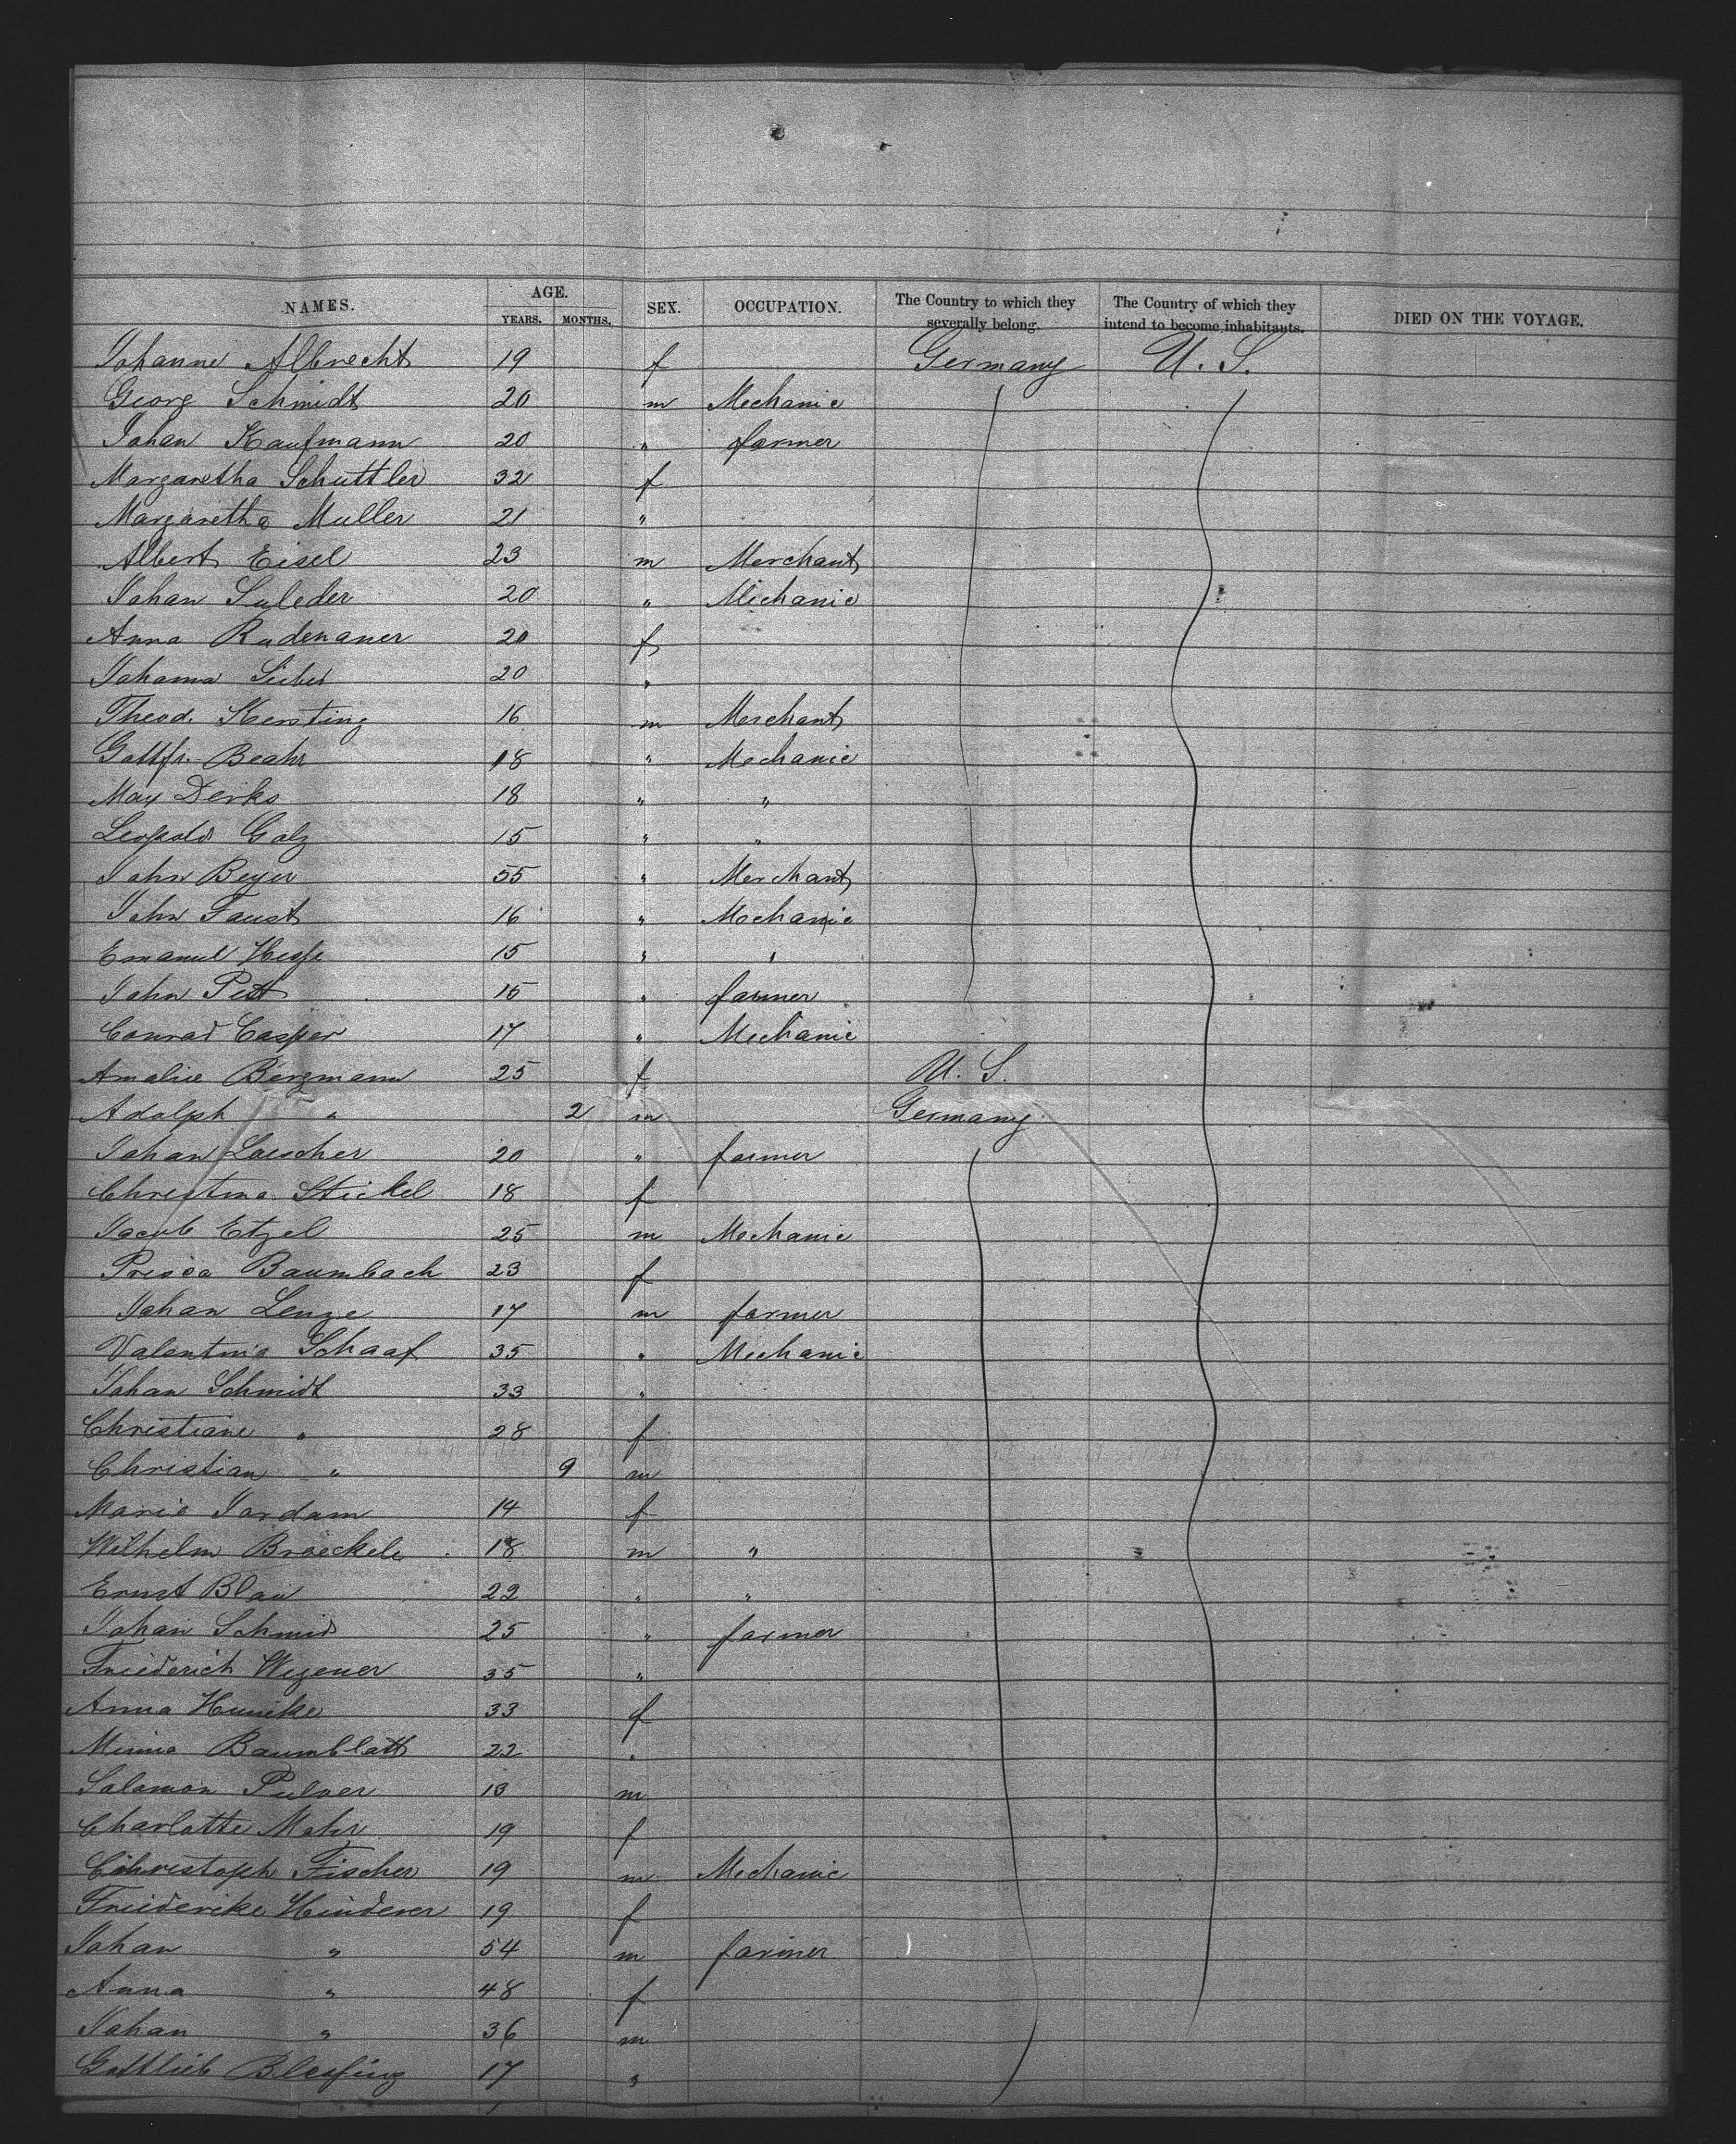 NAMES. AGE. YEARS. MONTHS. SEX. OCCUPATION. The Country to which they severally belong. The Country of which they intend to become inhabitants. DIED ON THE VOYAGE.
Johanne Albrecht 19 f Germany U. S.
Georg Schmidt 20 m Mechanic
Johan Kaufmann 20 " farmer
Margaretha Schuttler 32 f
Margaretha Muller 21 "
Albert Eisel 23 m Merchant
Johan Suleder 20 " Mechanic
Anna Radenauer 20 f
Johanna 20 "
Theod. Kersting 16 m Merchant
Gottfr. Beahr 18 " Mechanic
Max Derks 18 " "
Leopold Golz 15 " "
John Beyer 55 " Merchant
John Faust 16 " Mechanic
Emanuel Hesse 15 " "
John 15 " farmer
Conrad Casper 17 " Mechanic
Amalie Bergmann 25 f U. S.
Adolph " 2 m Germany
Johan Loescher 20 " farmer
Christina Stickel 18 f
Jacob Etzel 25 m Mechanic
Prisca Baumbach 23 f
Johan Lenze 17 m farmer
Valentina Schaaf 35 " Mechanic
Johan Schmidt 33 "
Christiane " 28 f
Christian " 9 m
Marie Jordam 14 f
Wilhelm Broeckele 18 m "
Ernst Blau 22 " "
Johan Schmid 25 " farmer
Friederich Wegener 35 "
Anna Hunike 33 f
Minna Baumblatt 22 "
Salamon Pulver 13 m
Charlotte Mohr 19 f
Christoph Fischer 19 m Mechanic
Friederike Hinderer 19 f
Johan " 54 m farmer
Anna " 48 f
Johan " 36 m
Gottlieb Blessing 17 "